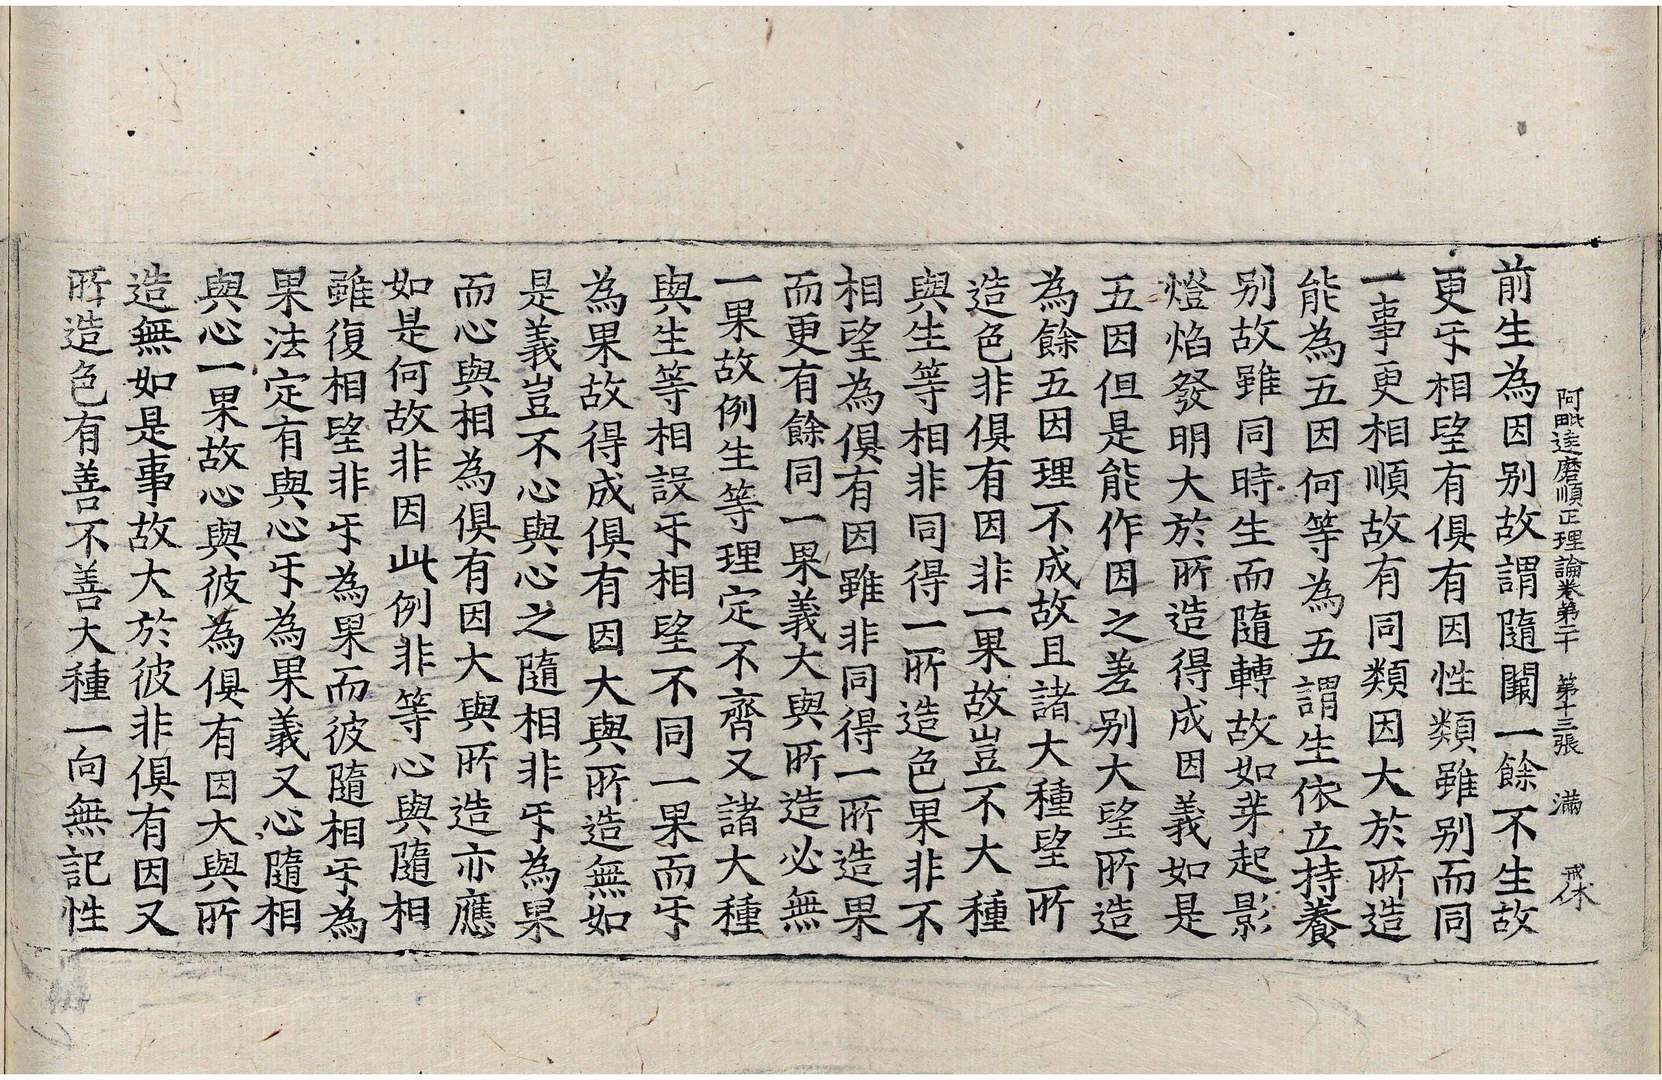 阿毗達磨順正理論卷第二十 第十三張 滿 戒休
前生為因别故謂隨闕一餘不生故
更㸦相望有俱有因性類雖别而同
一事更相順故有同類因大於所造
能為五因何等為五謂生依立持養
别故雖同時生而隨轉故如芽起影
燈焰發明大於所造得成因義如是
五因但是能作因之差别大望所造
為餘五因理不成故且諸大種望所
造色非俱有因非一果故豈不大種
與生等相非同得一所造色果非不
相望為俱有因雖非同得一所造果
而更有餘同一果義大與所造必無
一果故例生等理定不齊又諸大種
與生等相設㸦相望不同一果而㸦
為果故得成俱有因大與所造無如
是義豈不心與心之隨相非㸦為果
而心與相為俱有因大與所造亦應
如是何故非因此例非等心與隨相
雖復相望非㸦為果而彼隨相㸦為
果法定有與心㸦為果義又心隨相
與心一果故心與彼為俱有因大與所
造無如是事故大於彼非俱有因又
所造色有善不善大種一向無記性